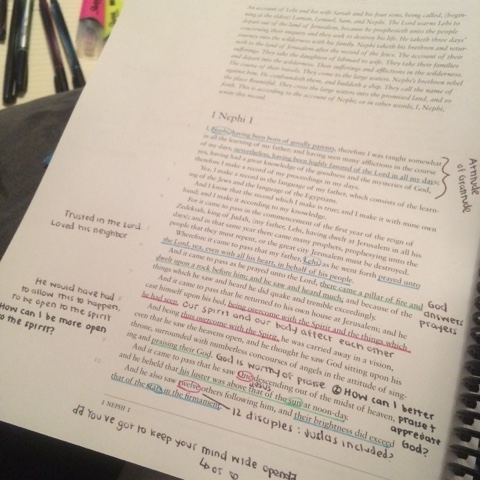 An account of Lehi and his wife Sariah and his four sons, being called, (begin-
ning at the eldest) Laman, Lemuel, Sam, and Nephi. The Lord warns Lehi to
depart out of the land of Jerusalem, because he prophesieth unto the people
concerning their iniquity and they seek to destroy his life. He taketh three days'
journey into the wilderness with his family. Nephi taketh his brethren and retur-
neth to the land of Jerusalem after the record of the Jews. The account of their
sufferings. They take the daughters of Ishmael to wife. They take their families
and depart into the wilderness. Their sufferings and afflictions in the wilderness.
The course of their travels. They come to the large waters. Nephi's brethren rebel
against him. He confoundeth them, and buildeth a ship. They call the name of
the place Bountiful. They cross the large waters into the promised land, and so
forth. This is according to the account of Nephi; or in other words, I, Nephi,
wrote this record.
1 Nephi 1
I, Nephi, having been born of goodly parents, therefore I was taught somewhat
in all the learning of my father; and having seen many afflictions in the course
of my days, nevertheless, having been highly favored of the Lord in all my days;
yea, having had a great knowledge of the goodness and the mysteries of God,
therefore I make a record of my proceedings in my days.
Attitude
of Gratitude
Yea, I make a record in the language of my father, which consists of the learn-
ing of the Jews and the language of the Egyptians.
And I know that the record which I make is true; and I make it with mine own
hand; and I make it according to my knowledge.
For it came to pass in the commencement of the first year of the reign of
Zedekiah, king of Judah, (my father, Lehi, having dwelt at Jerusalem in all his
days); and in that same year there came many prophets, prophesying unto the
people that they must repent, or the great city Jerusalem must be destroyed.
Trusted in the Lord
Loved his neighbor
Wherefore it came to pass that my father, Lehi, as he went forth prayed unto
the Lord, yea, even with all his heart, in behalf of his people.
And it came to pass as he prayed unto the Lord, there came a pillar of fire and
dwelt upon a rock before him; and he saw and heard much; and because of the
things which he saw and heard he did quake and tremble exceedingly.
God
answers
prayers
And it came to pass that he returned to his own house at Jerusalem; and he
cast himself upon his bed, being overcome with the Spirit and the things which
he had seen. our spirit and our body affect each other
He would have had
to allow this to happen.
To be open to the spirit
How can I be more open
to the spirit?
And being thus overcome with the Spirit, he was carried away in a vision,
even that he saw the heavens open, and he thought he saw God sitting upon his
throne, surrounded with numberless concourses of angels in the attitude of sing-
ing and praising their God. God is worthy of praise How can I better
praise +
appreciate
God?
And it came to pass that he saw One descending out of the midst of heaven,
and he beheld that his luster was above that of the sun at noon-day.
And he also saw twelve others following him, and their brightness did exceed
that of the stars in the firmament. 12 disciples : Judas included?
1 NEPHI 1
You've got to keep your mind wide opend